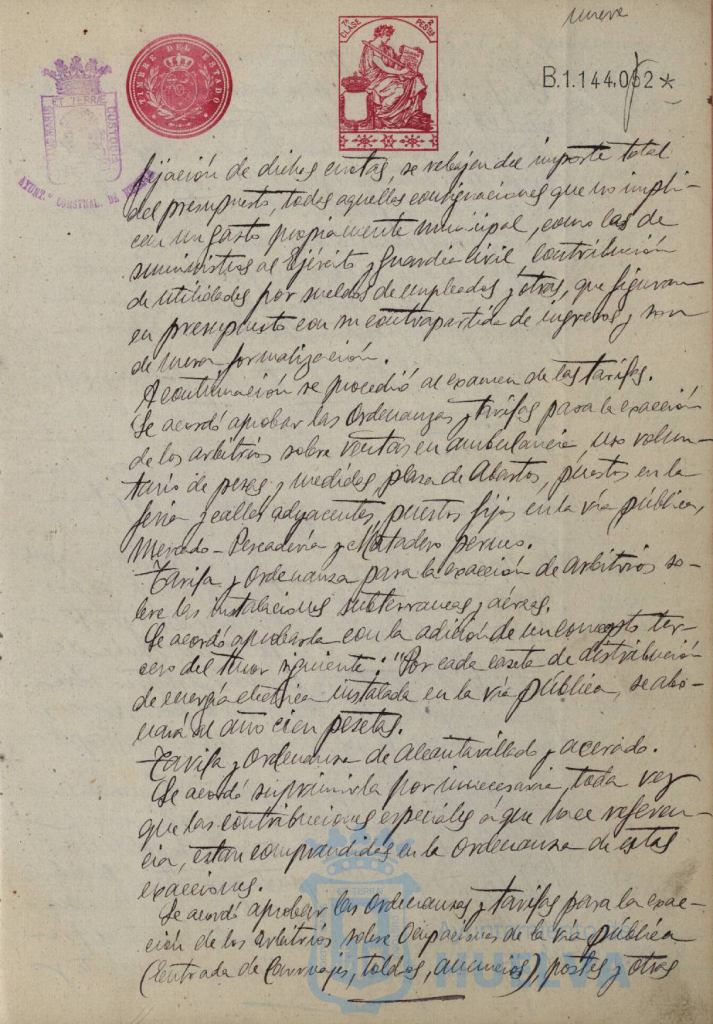 nueve
7ª CLASE
2 PESETAS
TIMBRE DEL ESTADO
B.1.144.052 *
AYUNT.º CONSTNAL. DE HUELVA
fijación de dichas cuotas, se rebajen del importe total
del presupuesto, todas aquellas consignaciones que no impli-
can un gasto propiamente municipal, como las de
suministros al Ejército y Guardia Civil contribución
de utilidades por sueldos de empleados y otras, que figuran
en presupuesto con su contrapartida de ingresos y son
de mera formalización.
A continuación se procedió al examen de las tarifas.
Se acordó aprobar las Ordenanzas y tarifas para la exacción
de los arbitrios sobre ventas en ambulancia uso volun-
tario de pesas y medidas plaza de Abastos, puestos en la
feria y calles adyacentes, puestos fijos en la vía pública,
Mercado-Pescadería y Matadero
Tarifa y ordenanza para la exacción de arbitrios so-
bre las instalaciones subterraneas y aéreas.
Se acordó aprobarla con la adición de un concepto ter-
cero del tenor siguiente: "Por cada caseta de distribución
de energía electrica instalada en la vía pública, se abo-
nará al año cien pesetas.
Tarifa y Ordenanza de Alcantarillado y acerado.
Se acordó suprimirla por innecesaria, toda vez
que las contribuciones especiales a que hace referen-
cia, estan comprendidas en la Ordenanza de estas
exacciones.
Se acordó aprobar las Ordenanzas y tarifas para la exac-
ción de los arbitrios sobre Ocupaciones de la vía pública
(Entrada de Carruajes, toldos, anuncios), postes y otras
HUELVA